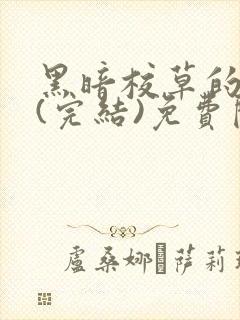 黑暗校草的
(完結)免費
盧桑娜 萨莉